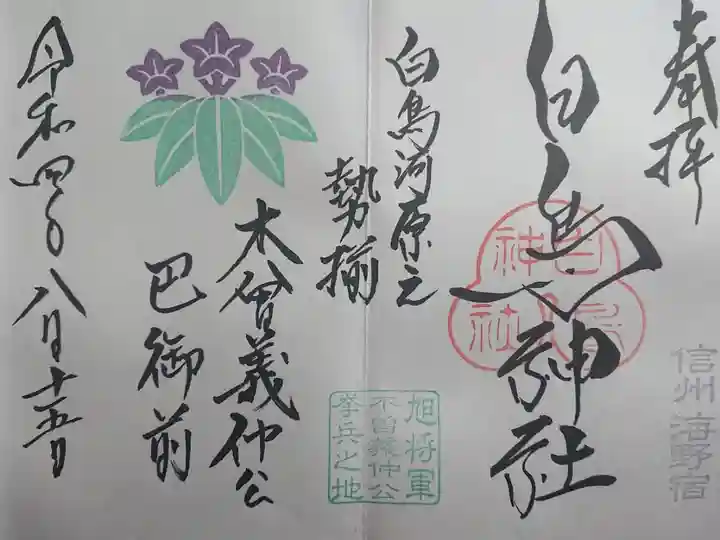 奉拝
白鳥神社
白鳥神社
信州 海野宿
白鳥河原
勢揃
旭将軍
木曽義仲公
挙兵之地
木曽義仲公
巴御前
令和四年八月十五日